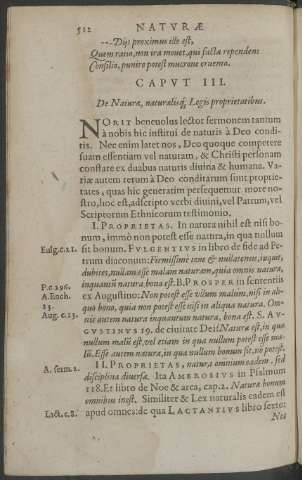 512 NATVRÆ
--Dijs proximus ille est,
Quem ratio, non ira mouet, qui facta rependens
Consilio, punire potest mucrone cruento.
CAPVT III.
De Natura, naturalisq́, Legis proprietatibus.
NORIT beneuolus lector sermonem tantum
à nobis hic institui de naturis à Deo condi-
tis. Nec enim latet nos, Deo quoque competere
suam essentiam vel naturam, & Christi personam
constare ex duabus naturis diuina & humana. Va-
riæ autem rerum à Deo conditarum sunt proprie-
tates, quas hic generatim persequemur more no-
stro, hoc est, adscripto verbi diuini, vel Patrum, vel
Scriptorum Ethnicorum testimonio.
I. PROPRIETAS. In natura nihil est nisi bo-
num, immò non potest esse natura, in qua nullum
Fulg. c. 21. sit bonum. FVLGENTIVS in libro de fide ad Pe-
trum diaconum: Firmissimè tene & nullatenus, inquit,
dubites, nullam esse malam naturam, quia omnis natura,
inquantū natura bona est. B. PROSPER in sententiis
P. c 296.
A. Ench. ex Augustino: Non potest esse vllum malum, nisi in ali-
23. quo bono, quia non potest esse nisi in aliqua natura. Om-
Aug. c. 13. nis autem natura inquantum natura, bona est. S. AV-
GVSTINVS 19. de ciuitate Dei: Natura est, in qua
nullum malū est, vel etiam in qua nullum potest esse ma-
lū. Esse autem natura, in qua nullum bonum sit, nō potest.
II. PROPRIETAS, natura omnium eadem, sed
A. serm. 2. disciplina diuersa. Ita AMBROSIVS in Psalmum
118. Et libro de Noe & arca, cap. 2. Natura bonum
omnibus inest. Similiter & Lex naturalis eadem est
Lact. c. 8. apud omnes: de qua LACTANTIVS libro sexto:
Nec